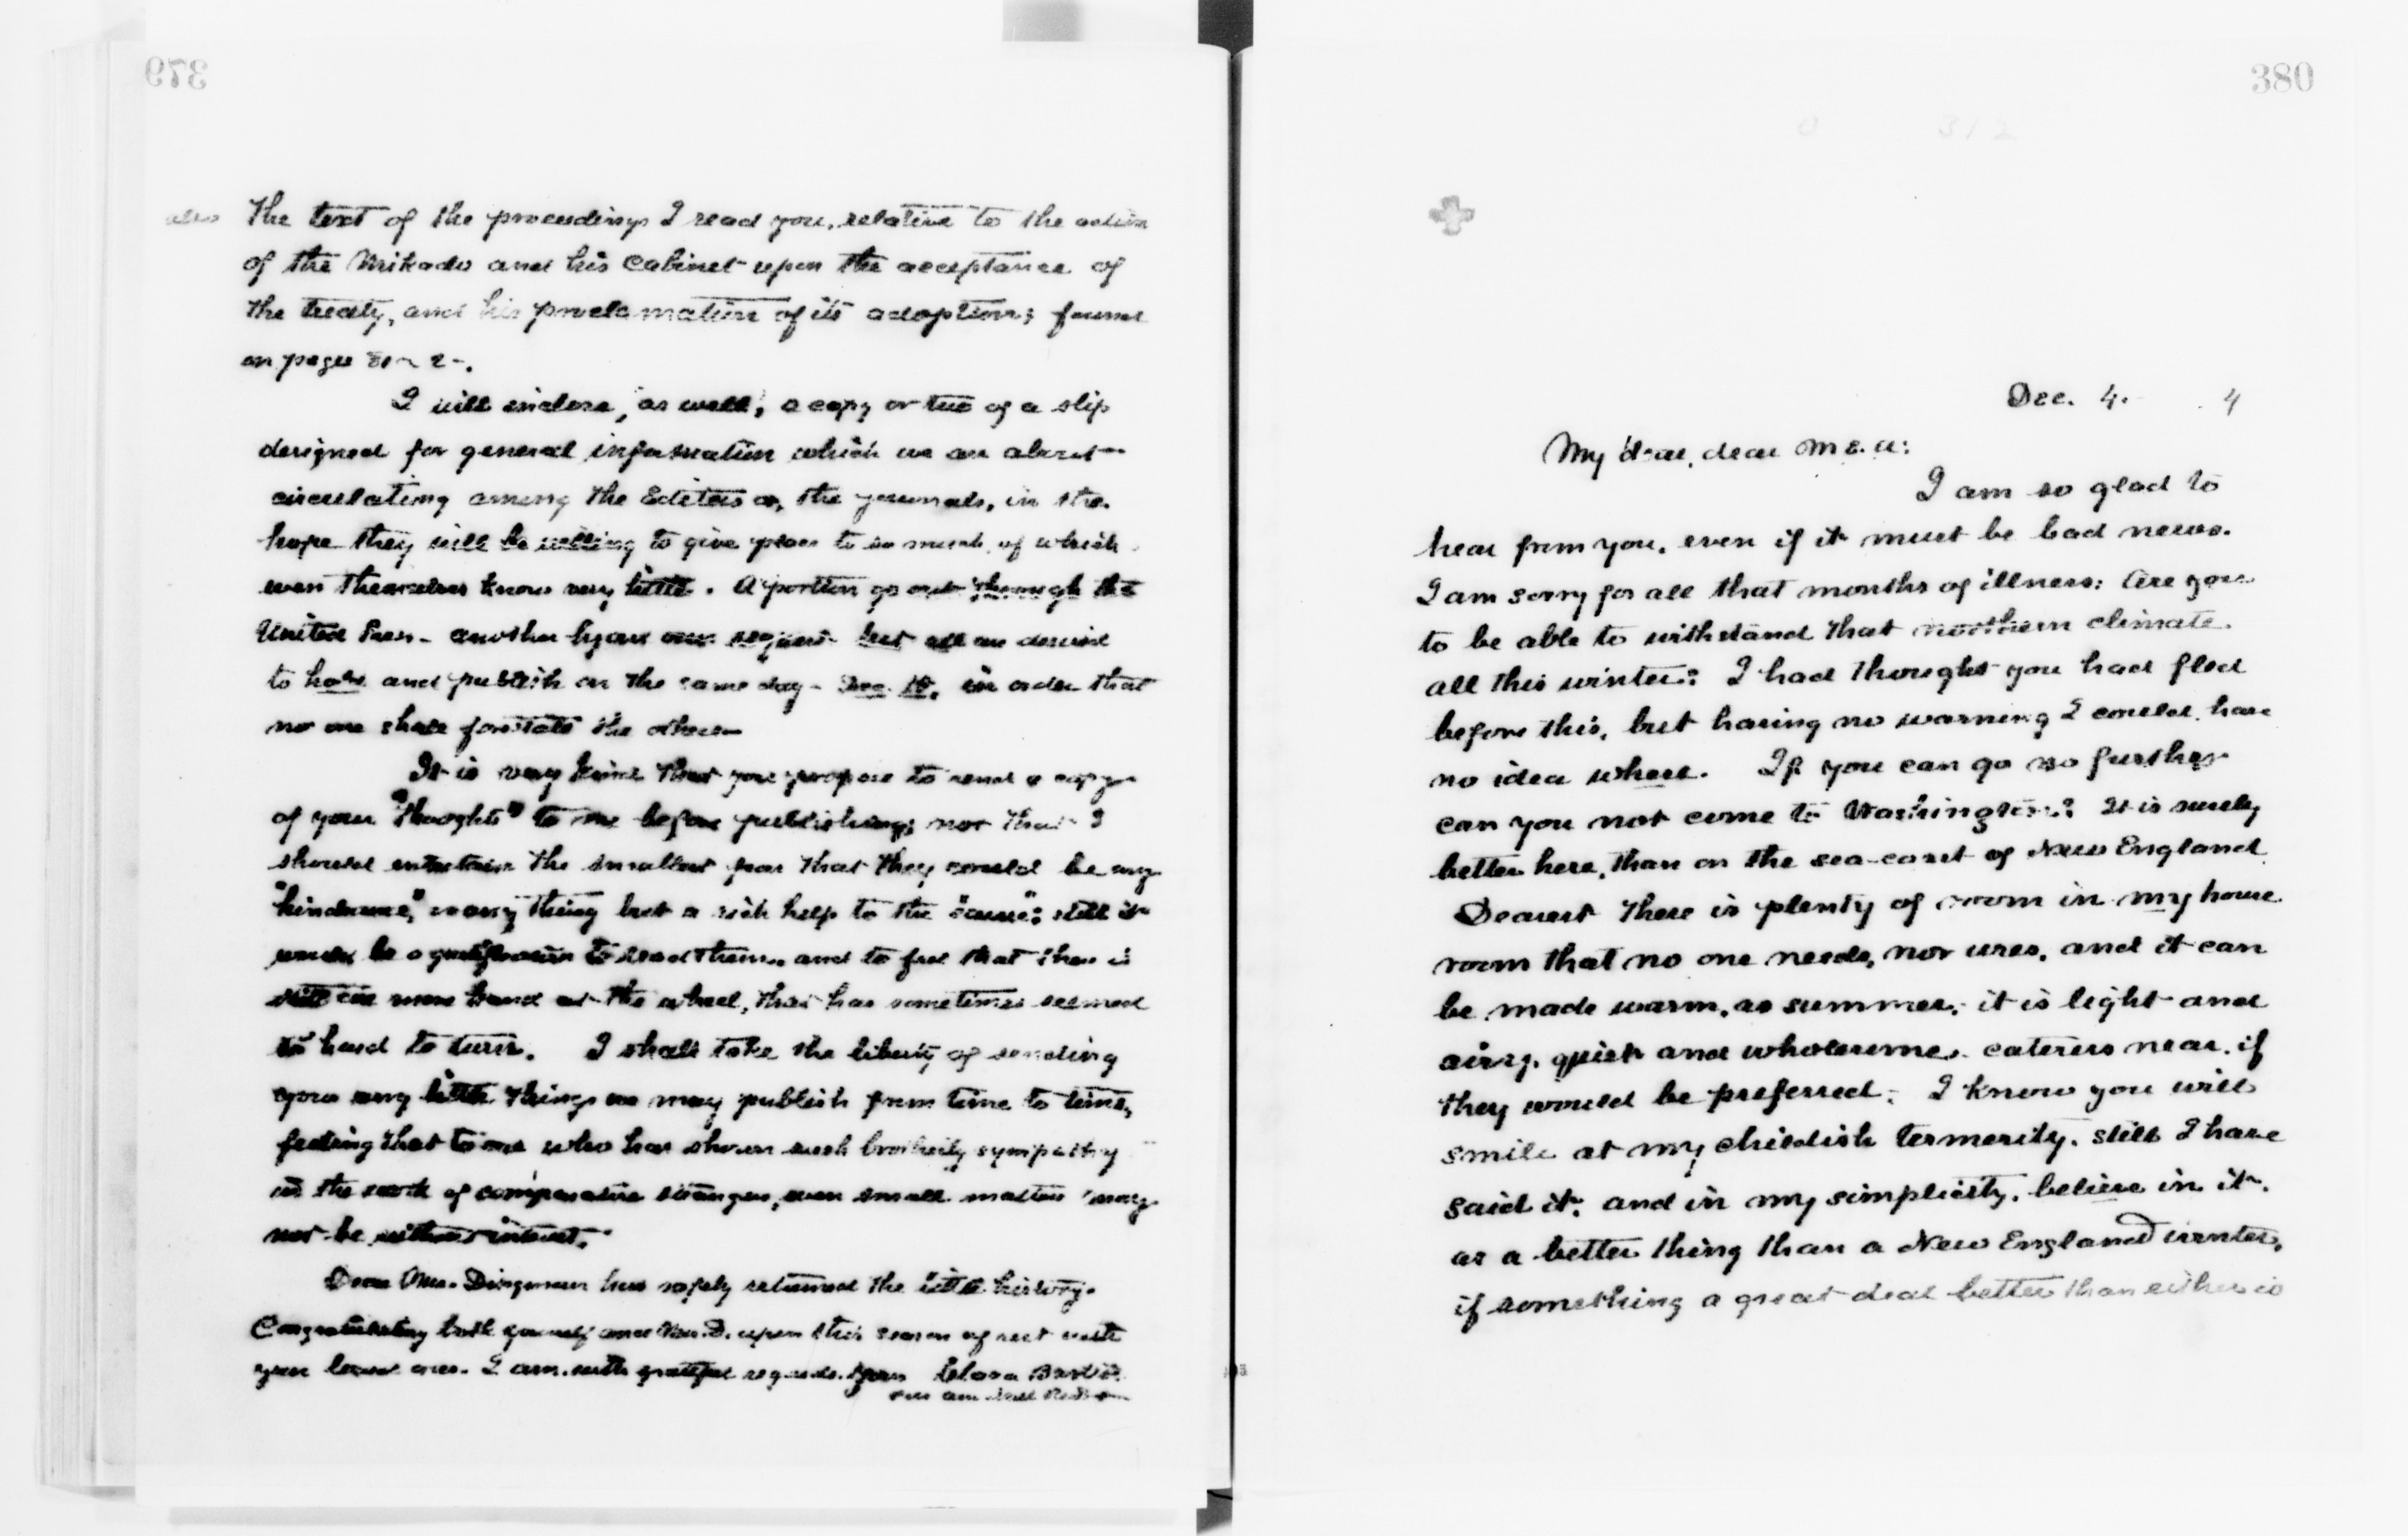 379
also the text of the proceedings I read you, relative to the action
of the Mikado and his Cabinet upon the acceptance of
the treaty, and his proclamation of its adoption; found
on pages
I will inclose, as well, a copy or two of a slip
designed for general information which we are about
circulating among the Editors or the journals, in the
hope they will be willing to give place to so much, of which
even themselves know very little. A portion go out through the
United Press - another by our own request but all are desired
to hold and publish on the same day - Dec. in order that
no one shall forestall the others
It is very kind that you propose to send a copy
of your "Thoughts" to me before publishing; not that I
should entertain the smallest fear that they could be any
"hindrance," or any thing but a rich help to the "cause"; still it
would be a gratification to read them, and to feel that there is
still one more hand at the wheel, that has sometimes seemed
so hard to turn. I shall take the liberty of sending
you any little things we may publish from time to time,
feeling that to one who has shown such brotherly sympathy
in the work of comparative strangers, even small matters may
not be without interest.
Dear Mrs. Dingman has safely returned the little history.
Congratulating both yourself and Mrs. D. upon this season of rest with
your loved ones. I am, with grateful regards, Yours Clara Barton
380
Dec. 4. 4
My dear, dear M.E.A:
I am so glad to
hear from you, even if it must be bad news.
I am sorry for all that months of illness: Are you
to be able to withstand that northern climate
all this winter? I had thought you had fled
before this, but having no warning I could have
no idea where. If you can go no further
can you not come to Washington? It is surely
better here, than on the sea-coast of New England
Dearest there is plenty of room in my house
room that no one needs, nor uses, and it can
be made warm, as summer; it is light and
airy, quiet and wholesome, caterers near, if
they would be preferred; I know you will
smile at my childish termerity, still I have
said it, and in my simplicity, believe in it,
as a better thing than a New England winter,
if something a great deal better than either is